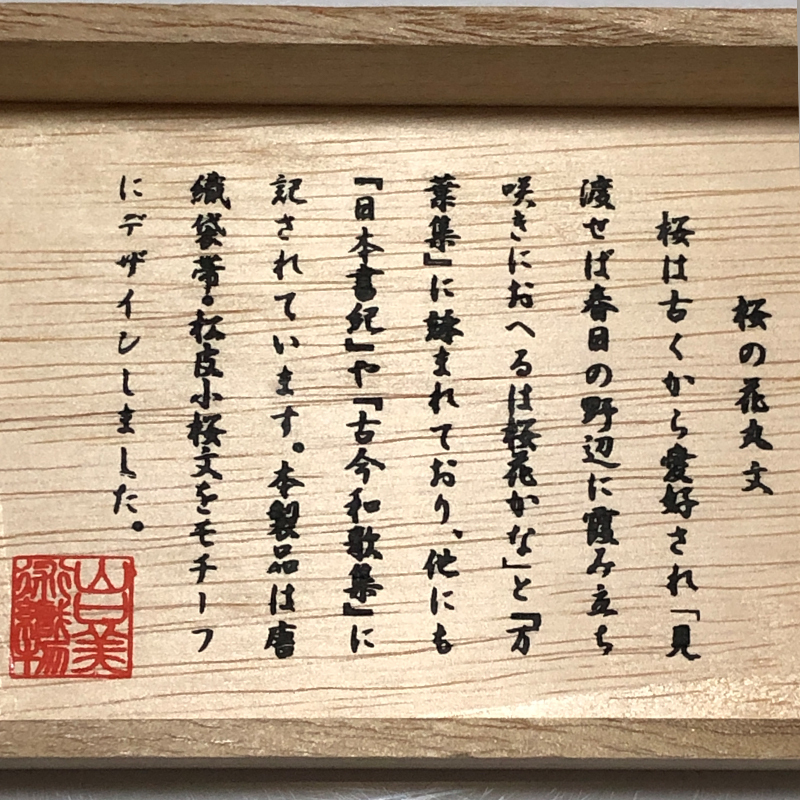 桜の花丸文
桜は古くから愛好され「見
渡せば春日の野辺に霞み立ち
咲きにおへるは桜花かな」と『万
葉集』に詠まれており、他にも
『日本書紀』や『古今和歌集』に
記されています。本製品は唐
織袋帯・松皮小桜文をモチーフ
にデザインしました。